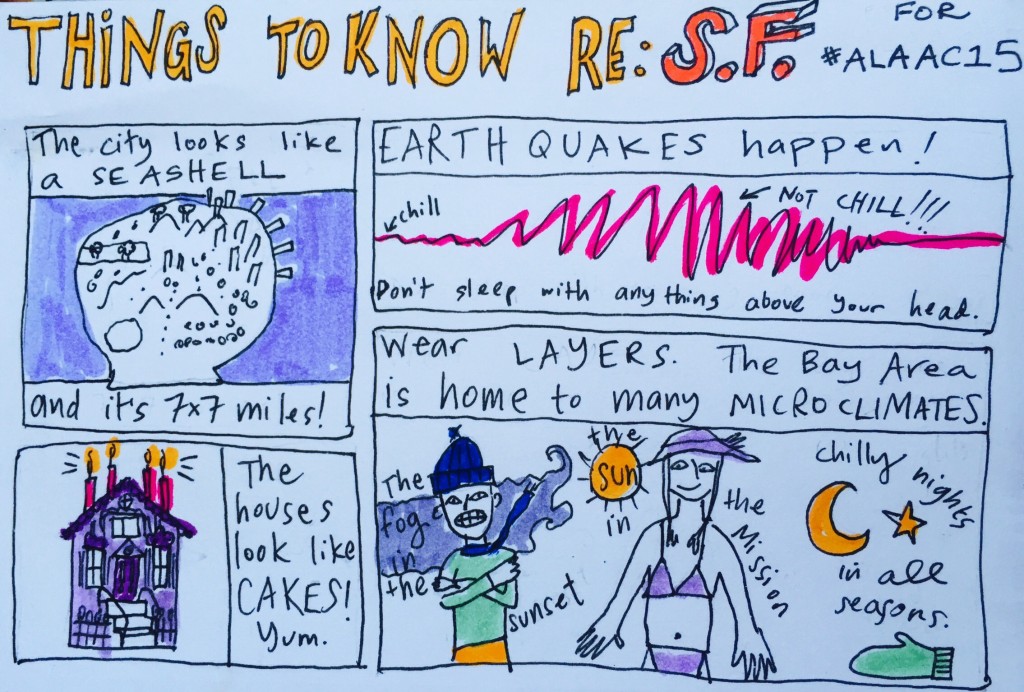 THINGS TO KNOW RE: S.F. FOR
#ALAAC15
The city looks like
a SEASHELL
and it's 7x7 miles!
EARTHQUAKES happen!
chill
NOT CHILL!!!
Don't sleep with anything above your head.
The
houses
look like
CAKES!
Yum.
Wear LAYERS. The Bay Area
is home to many MICROCLIMATES.
The
fog
in
the
sunset
the
sun
in
the
Mission
chilly nights
in all
seasons.